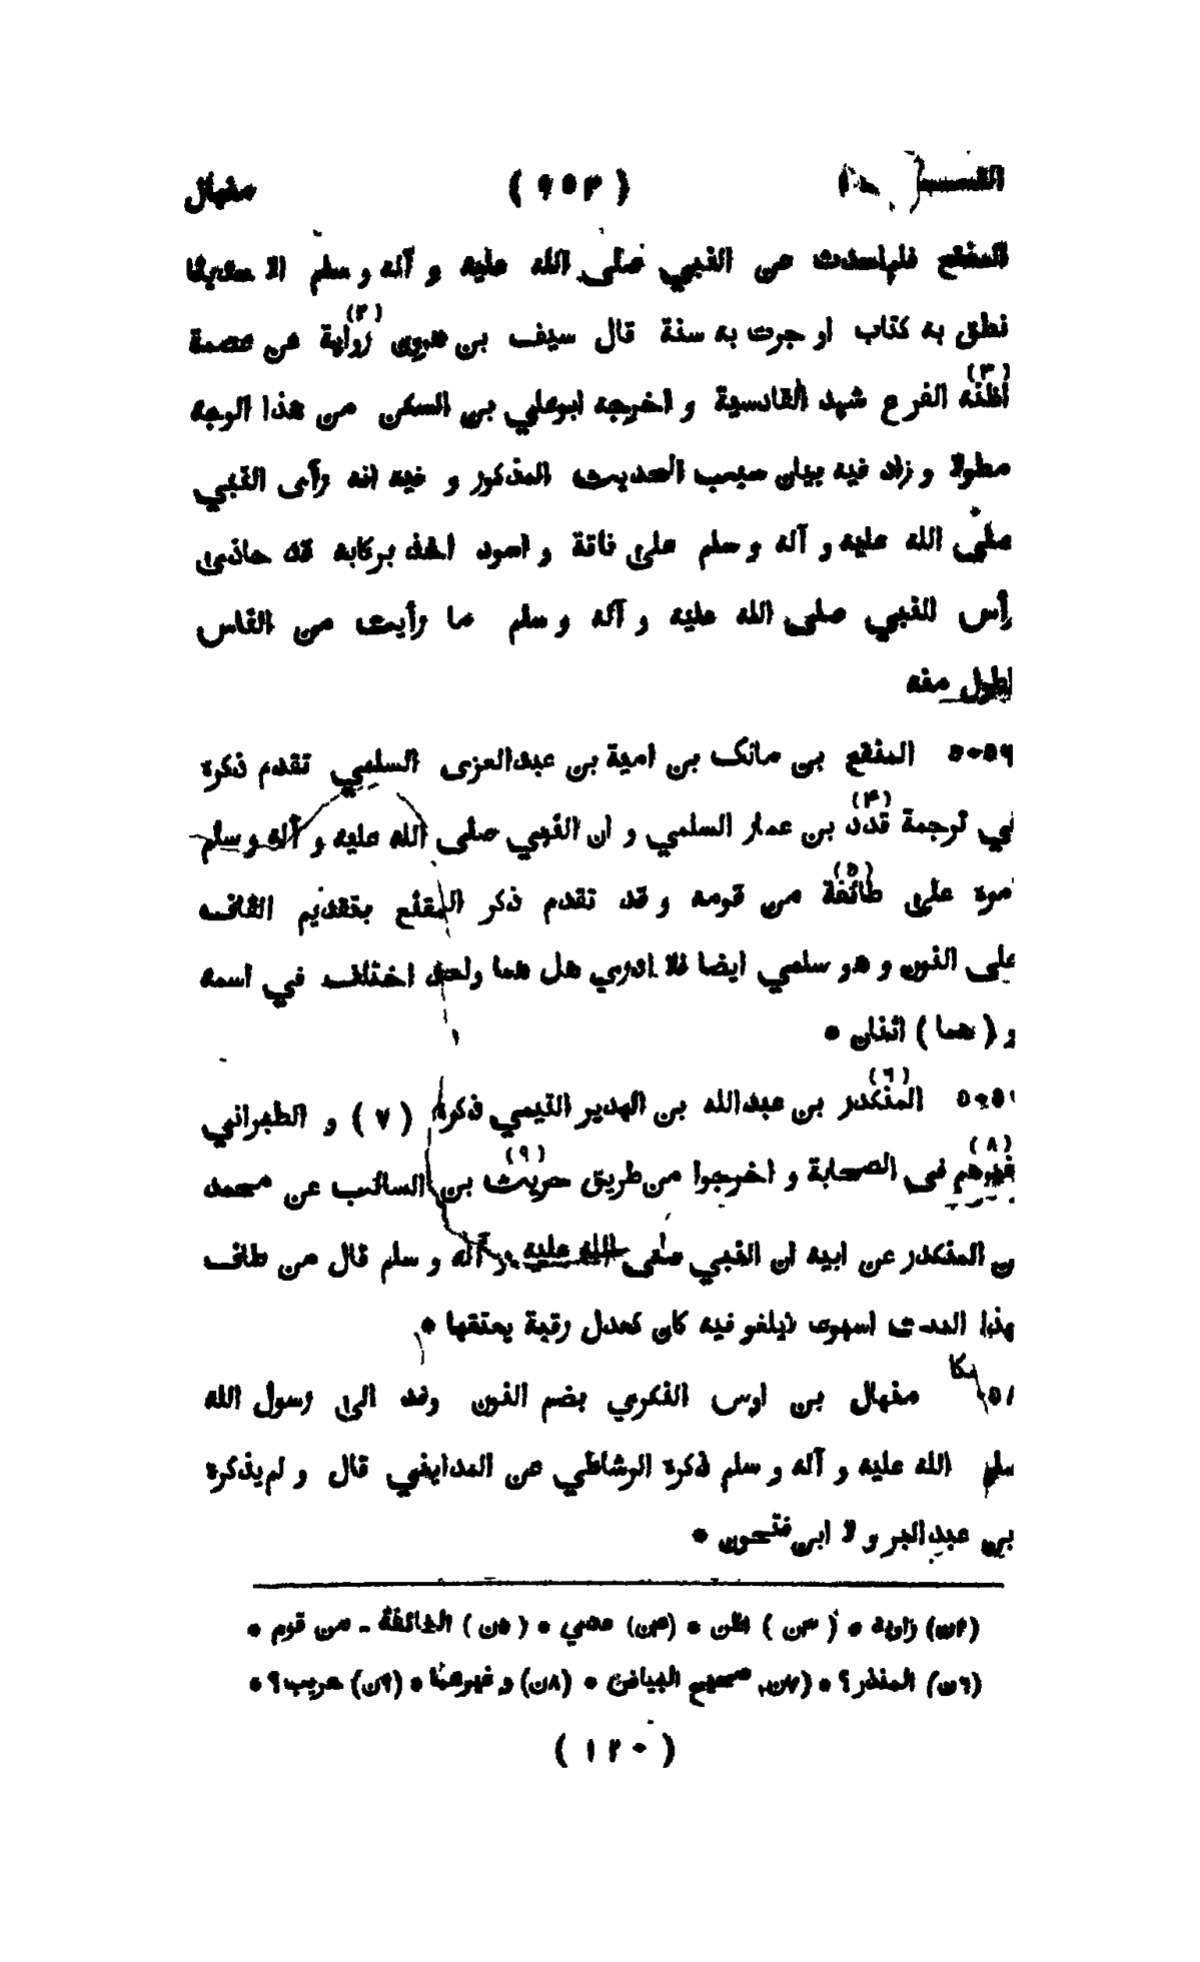 القسم ( ٩٥٣ ) منهال
المنقع فلم احدث عن النبي صلى الله عليه و آله و سلم الا حديثا
نطق به كتاب او جرت به سنة قال سيف بن هرون (٢) رواية عن عصمة
(٣) اظنه الفرع شهد القادسية و اخرجه ابوعلي بن السكن من هذا الوجه
مطولا و زاد فيه بيان سبب الحديث المذكور و فيه انه رأى النبي
صلى الله عليه و آله و سلم على ناقة و اسود اخذ بركابه قد حاذى
رأس النبي صلى الله عليه و آله و سلم ما رأيت من الناس
اطول منه
المنقع بن مالك بن امية بن عبدالعزى السلمي تقدم ذكره
في ترجمة قدد (٤) بن عمار السلمي و ان النبي صلى الله عليه و آله و سلم
امره على طائفة (٥) من قومه و قد تقدم ذكر المقنع بتقديم القاف
على النون و هو سلمي ايضا فلا ادري هل هما واحد اختلف في اسمه
و ( هما ) اثنان *
المنكدر (٦) بن عبدالله بن الهدير التيمي ذكره ( ٧ ) و الطبراني
(٨) غيرهم فى الصحابة و اخرجوا من طريق حريث (٩) بن السائب عن محمد
بن المنكدر عن ابيه ان النبي صلى الله عليه و آله و سلم قال من طاف
بهذا البيت اسبوعا لا يلغو فيه كان كعدل رقبة يعتقها *
منهال بن اوس النكري بضم النون وفد الى رسول الله
صلى الله عليه و آله و سلم ذكره الرشاطي عن المدايني قال و لم يذكره
ابن عبد البر و لا ابن فتحون *
(٢ن) زاوية * (٣ن) اظن * (٤ن) (٥ن) الطائفة - من قوم *
(٦ن) المنذر؟ * (٧ن) صحيح البياض * (٨ن) و غيرهما * (٩ن) حريب؟ *
( ١٢٠ )